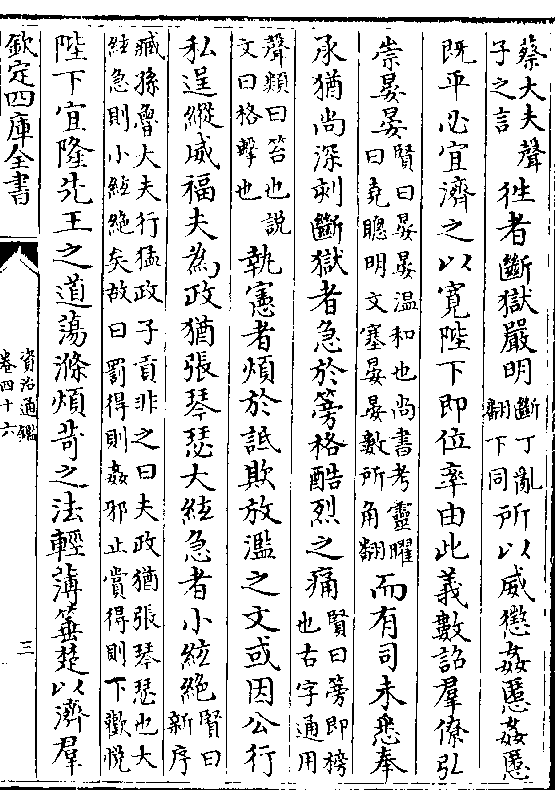 蔡大夫聲子之言往者斷獄嚴明斷丁亂翻下同所以威懲姦慝姦慝
既平必宜濟之以寛陛下即位率由此義數詔羣僚弘
崇晏晏賢曰晏晏温和也尚書考靈曜曰堯聰明文塞晏晏數所角翻而有司未悉奉
承猶尚深刻斷獄者急於篣格酷烈之痛賢曰篣即榜也古字通用
聲類曰笞也說文曰格擊也執憲者煩於詆欺放濫之文或因公行
私逞縱威福夫為政猶張琴瑟大絃急者小絃絶賢曰新序
臧孫魯大夫行猛政子貢非之曰夫政猶張琴瑟也大絃急則小絃絶矣故曰罰得則姦邪止賞得則下歡悦
陛下宜隆先王之道蕩滌煩苛之法輕薄箠楚以濟羣
欽定四庫全書
資治通鑑
卷四十六
三